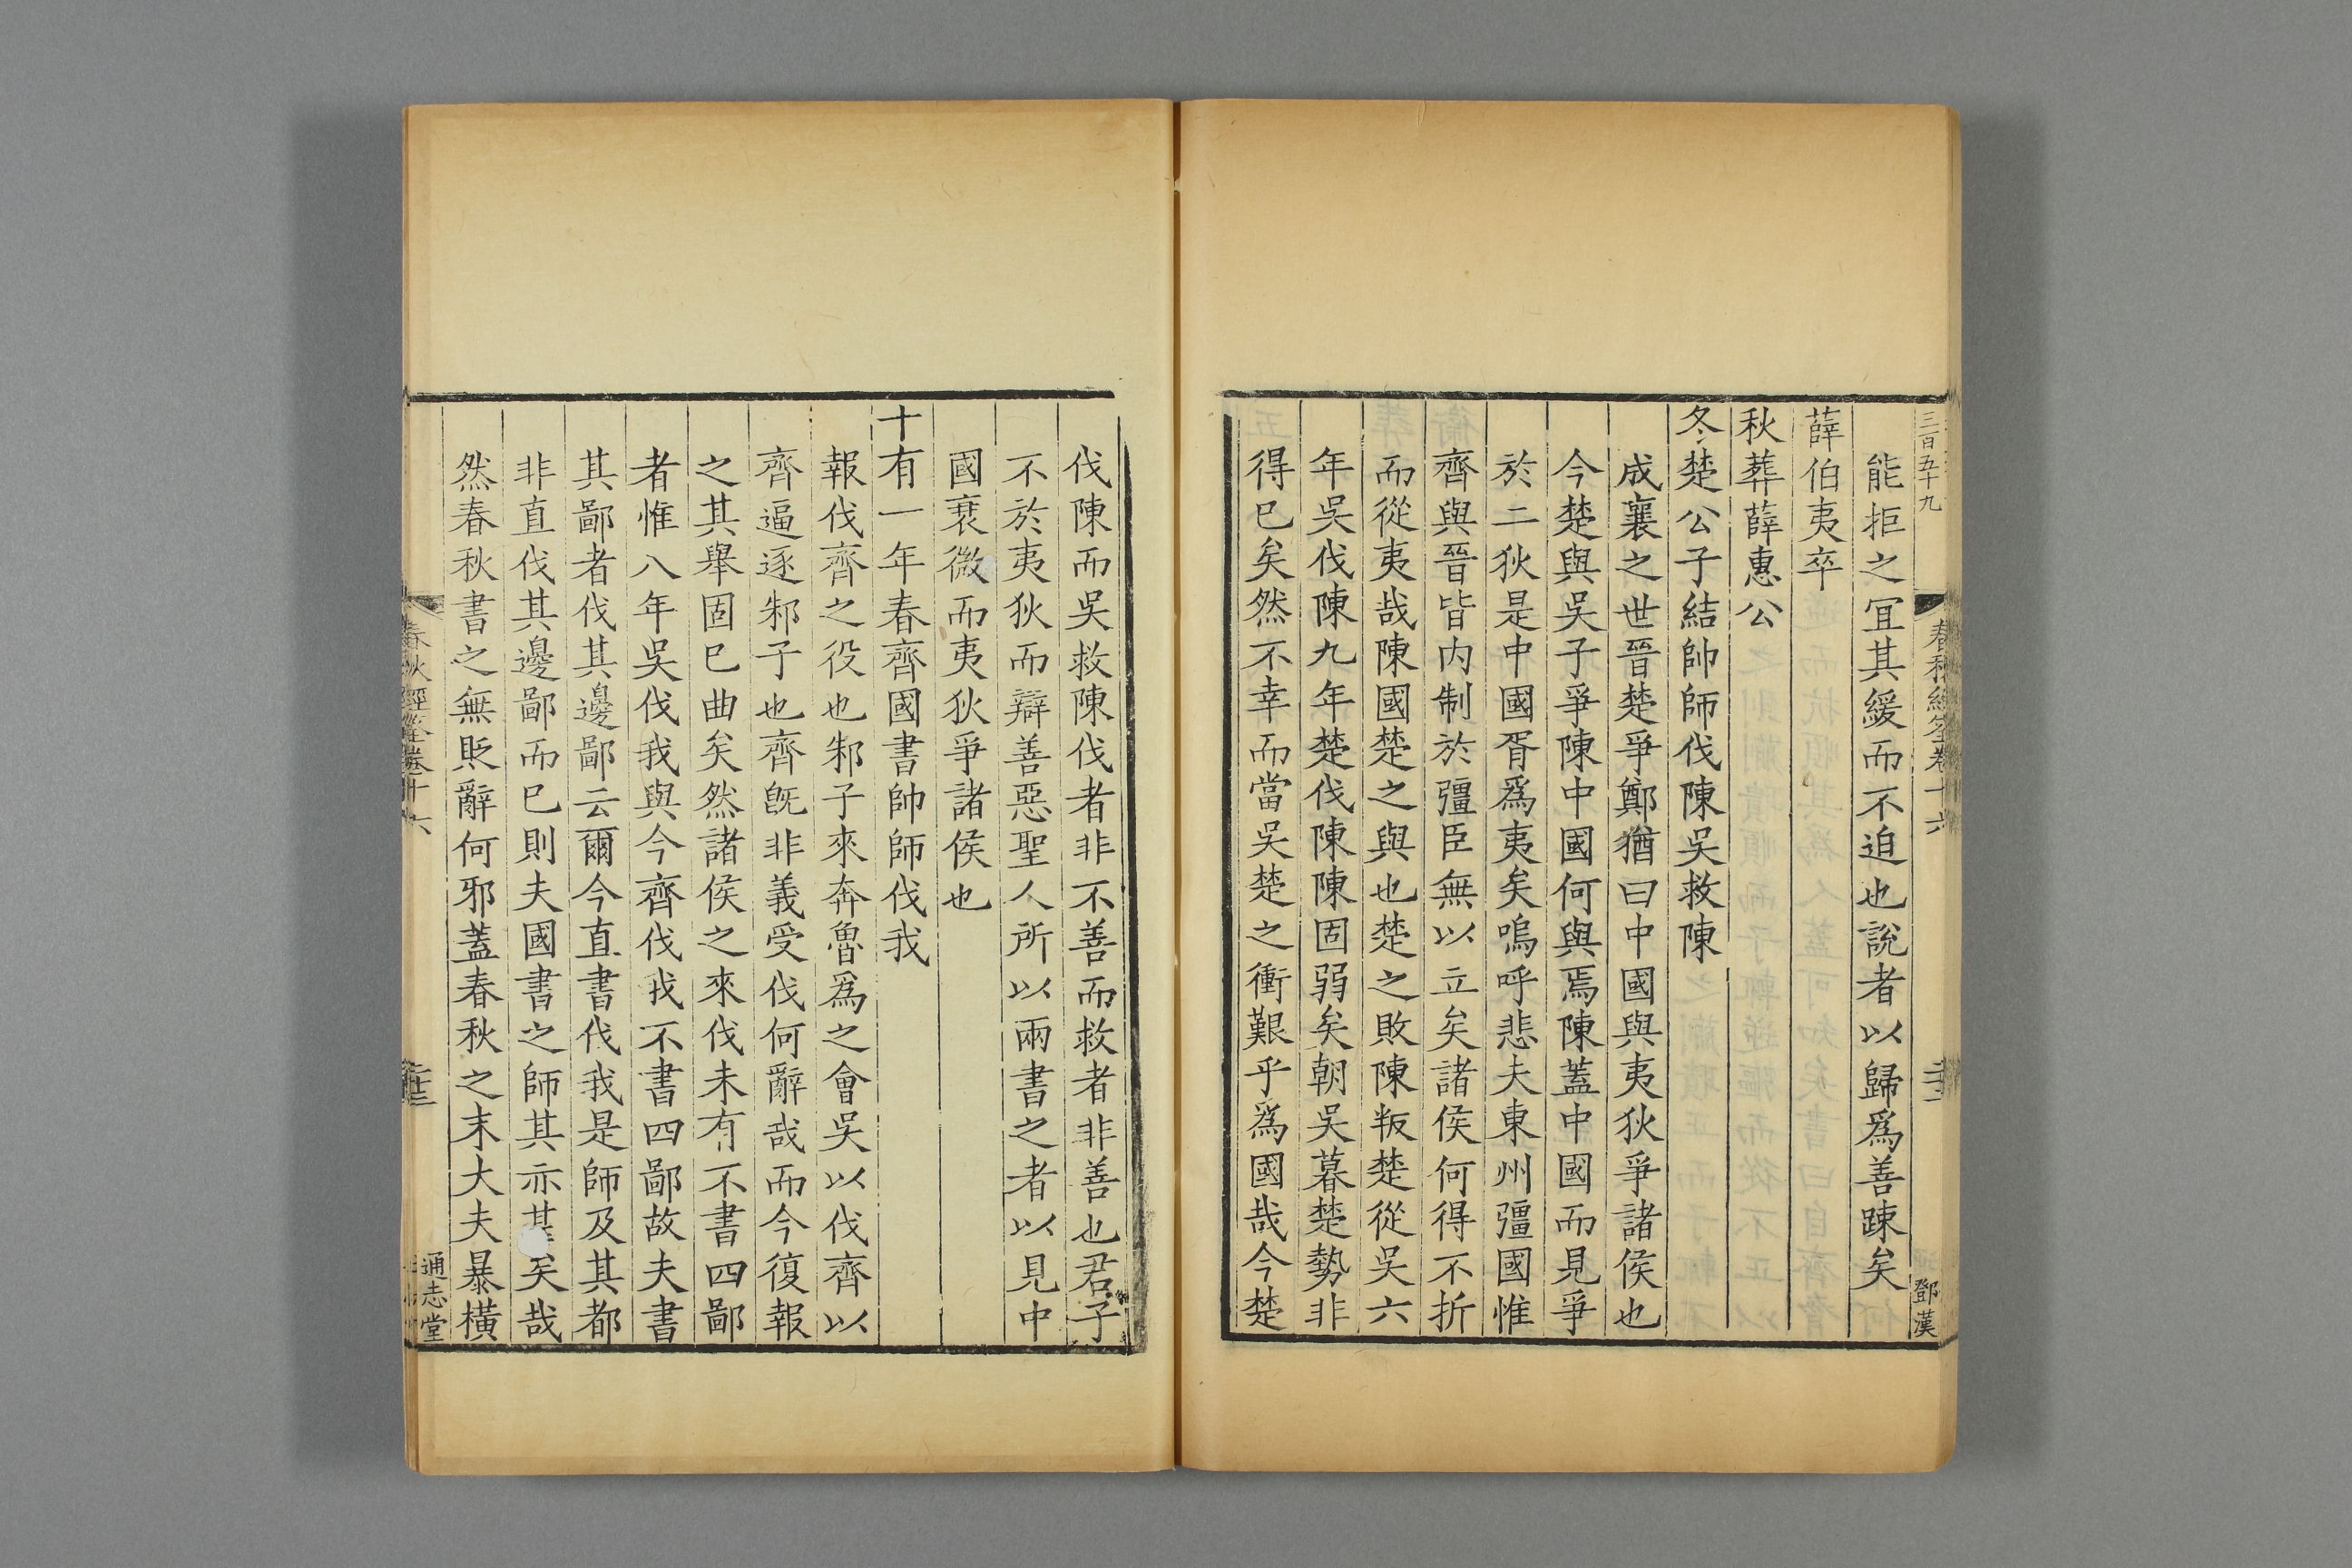 三百五十九
春秋經筌卷十六
鄧漢
能拒之宜其緩而不迫也說者以歸爲善踈矣
薛伯夷卒
秋葬薛惠公
冬楚公子結帥師伐陳吳救陳
成襄之世晉楚爭鄭猶曰中國與夷狄爭諸侯也
今楚與吳子爭陳中國何與焉陳蓋中國而見爭
於二狄是中國胥爲夷矣嗚呼悲夫東州彊國惟
齊與晉皆内制於彊臣無以立矣諸侯何得不折
而從夷哉陳國楚之與也楚之敗陳叛楚從吳六
年吳伐陳九年楚伐陳陳固弱矣朝吳暮楚勢非
得已矣然不幸而當吳楚之衝艱乎爲國哉今楚
伐陳而吳救陳伐者非不善而救者非善也君子
不於夷狄而辯善惡聖人所以兩書之者以見中
國衰微而夷狄爭諸侯也
十有一年春齊國書帥師伐我
報伐齊之役也邾子來奔魯爲之會吳以伐齊以
齊逼逐邾子也齊旣非義受伐何辭哉而今復報
之其舉固已曲矣然諸侯之來伐未有不書四鄙
者惟八年吳伐我與今齊伐我不書四鄙故夫書
其鄙者伐其邊鄙云爾今直書伐我是師及其都
非直伐其邊鄙而已則夫國書之師其亦甚矣哉
然春秋書之無貶辭何邪蓋春秋之末大夫暴橫
春秋經筌卷十六
通志堂